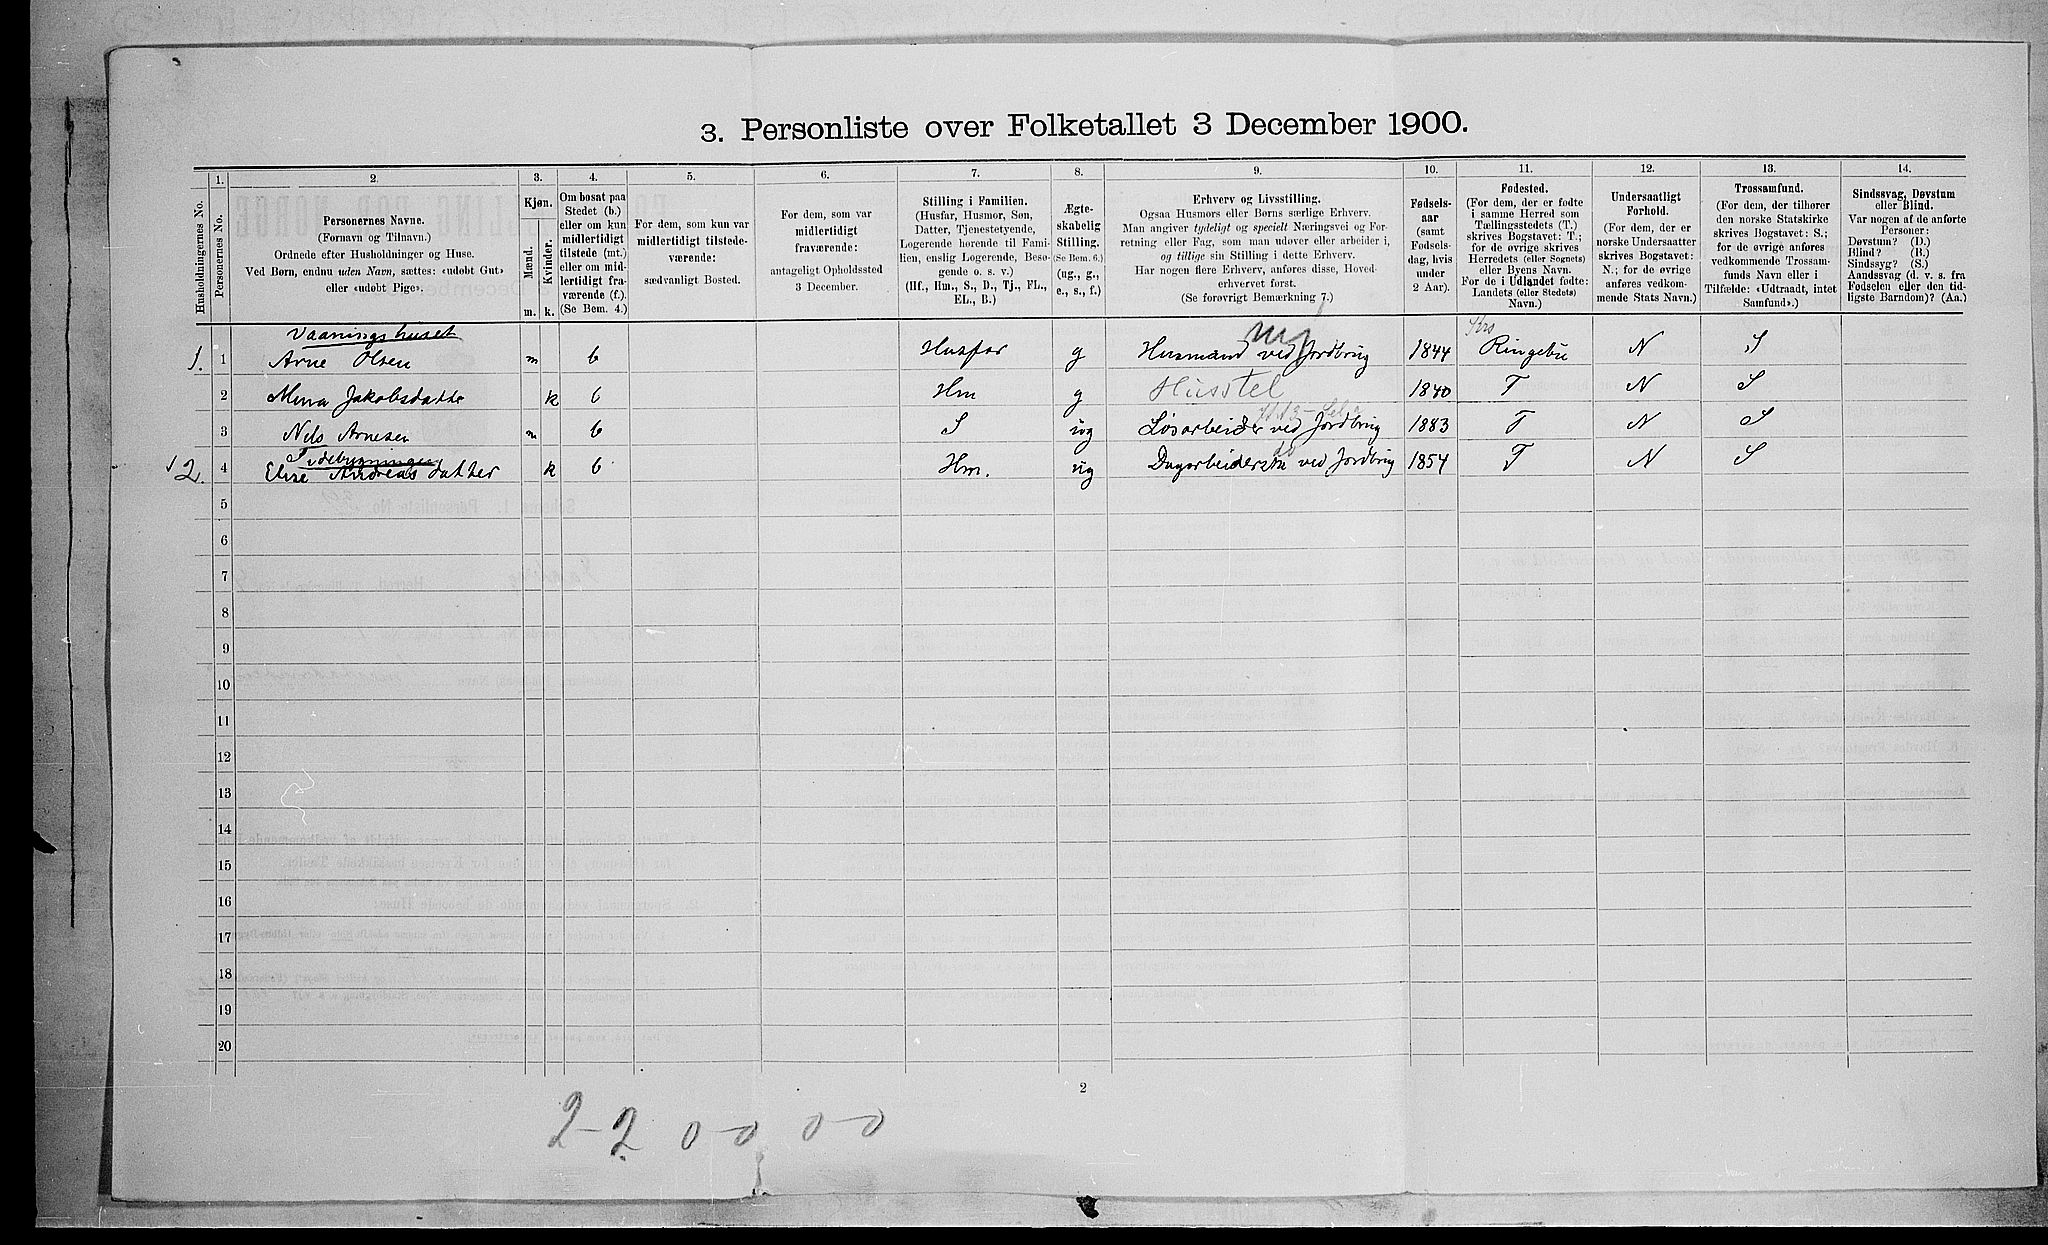 3. Personliste over Folketallet 3 December 1900.
1. 2. 3. 4. 5. 6. 7. 8. 9. 10. 11. 12. 13. 14.
Husholdningernes No.
Personernes No.
Personernes Navne.
(Fornavn og Tilnavn.)
Ordnede efter Husholdninger og Huse.
Ved Børn, endnu uden Navn, sættes: «udøbt Gut»
eller «udøbt Pige».
Kjøn.
Mænd.
Kvinder.
m. k.
Om bosat paa
Stedet (b.)
eller om kun
midlertidigt
tilstede (mt.)
eller om mid-
lertidigt fra-
værende (f.)
(Se Bem. 4.)
For dem, som kun var
midlertidigt tilstede-
værende:
sædvanligt Bosted.
For dem, som var
midlertidigt
fraværende:
antageligt Opholdssted
3 December.
Stilling i Familien.
(Husfar, Husmor, Søn,
Datter, Tjenestetyende,
Logerende hørende til Fami-
lien, enslig Logerende, Besø-
gende o. s. v.)
(Hf., Hm., S., D., Tj., FL.,
EL., B.)
Ægte-
skabelig
Stilling.
(Se Bem. 6.)
(ug., g.,
e., s., f.)
Erhverv og Livsstilling.
Ogsaa Husmors eller Børns særlige Erhverv.
Man angiver tydeligt og specielt Næringsvei og For-
retning eller Fag, som man udøver eller arbeider i,
og tillige sin Stilling i dette Erhverv.
Har nogen flere Erhverv, anføres disse, Hoved-
erhvervet først.
(Se forøvrigt Bemærkning 7.)
Fødsels-
aar
(samt
Fødsels-
dag, hvis
under
2 Aar).
Fødested.
(For dem, der er fødte
i samme Herred som
Tællingsstedets (T.)
skrives Bogstavet: T.;
for de øvrige skrives
Herredets (eller Sognets)
eller Byens Navn.
For de i Udlandet fødte:
Landets (eller Stedets)
Navn.)
Undersaatligt
Forhold.
(For dem, der er
norske Undersaatter
skrives Bogstavet:
N.; for de øvrige
anføres vedkom-
mende Stats Navn.)
Trossamfund.
(For dem, der tilhører
den norske Statskirke
skrives Bogstavet: S.;
for de øvrige anføres
vedkommende Trossam-
funds Navn eller i
Tilfælde: «Udtraadt, intet
Samfund».)
Sindssvag, Døvstum
eller Blind.
Var nogen af de anførte
Personer:
Døvstum? (D.)
Blind? (B.)
Sindssyg? (S.)
Aandssvag (d. v. s. fra
Fødselen eller den tid-
ligste Barndom)? (Aa.)
Vaaningshuset
1. 1 Arne Olsen m b Husfar g Husmand ved Jordbrug 1844 Ringebu N S
2 k b Hm g Husstel 1840 T N S
3 Nils Arnesen m b S ug Løsarbeider ved Jordbrug 1883 T N S
2. 4 Elise Andreasdatter k b Hm. ug ved Jordbrug 1854 T N S
5
6
7
8
9
10
11
12
13
14
15
16
17
18
19
20
2
2-2 0-0 0-0